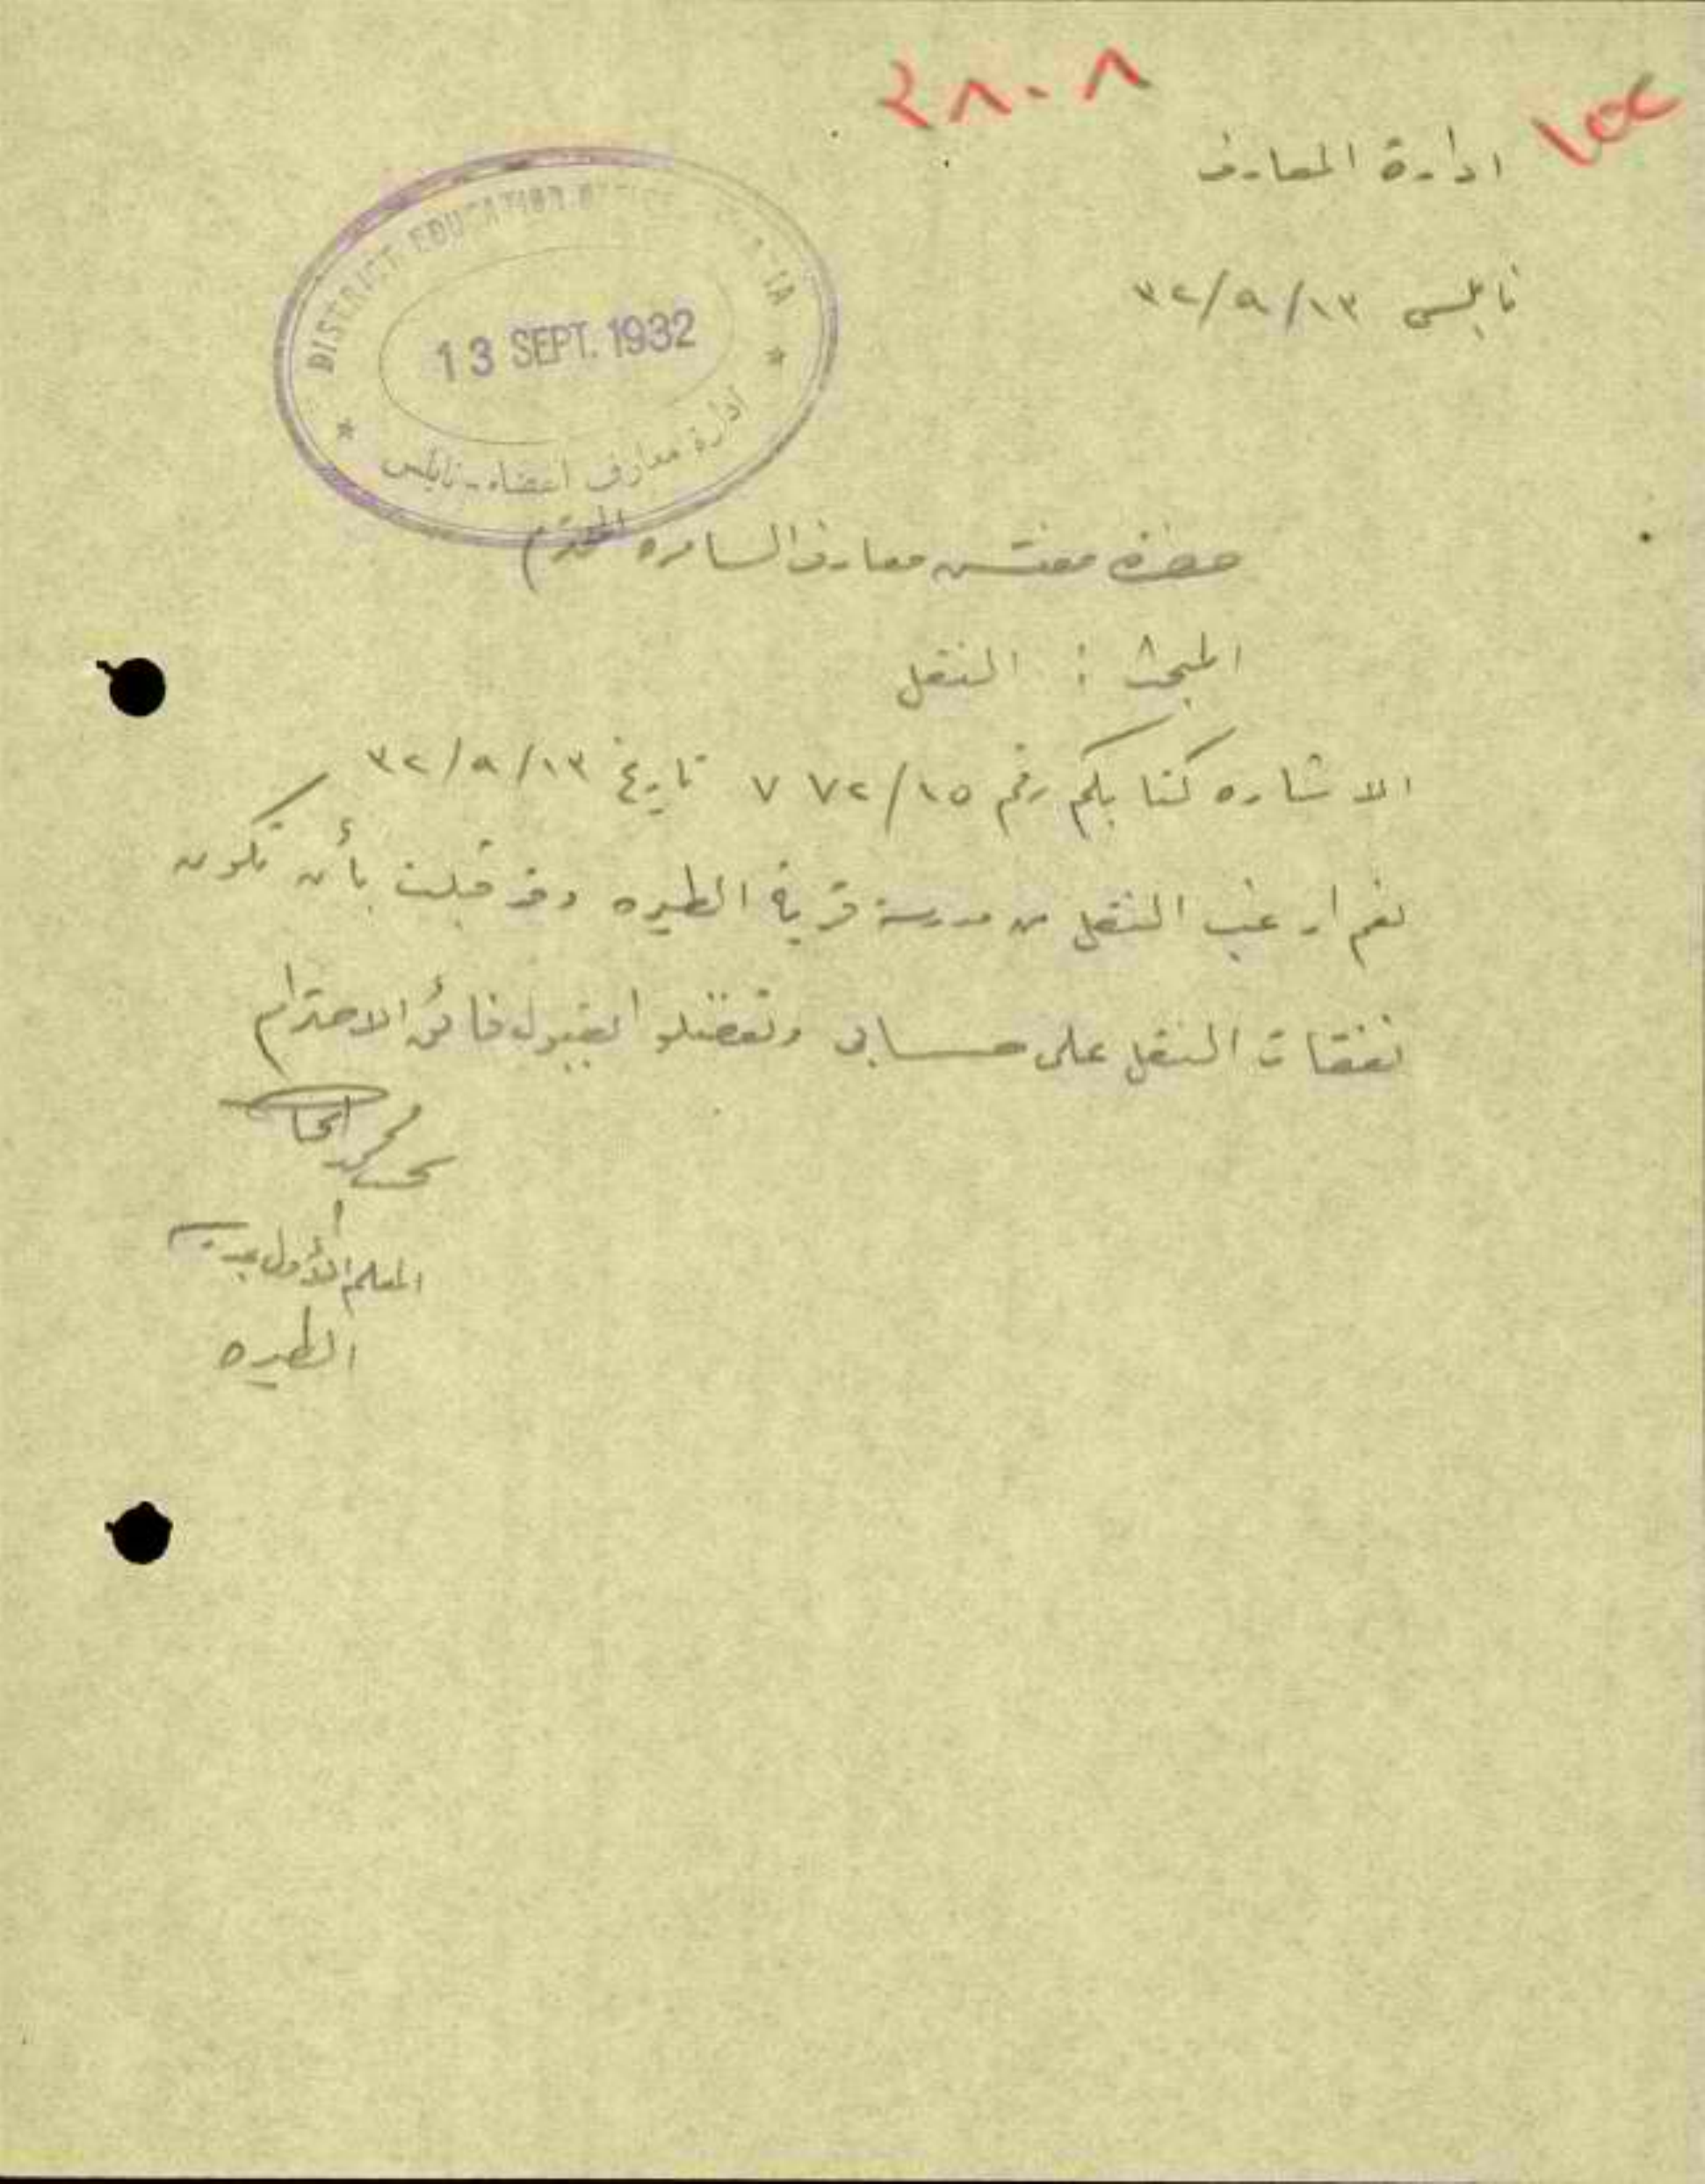 ٢٨٠٨
ادارة المعارف
نابلس ٣٢/٩/١٣
DISTRICT EDUCATION OFFICE
13 SEPT. 1932
ادارة معارف نابلس
حضرة مفتش معارف السامره المحترم
المبحث : النقل
الاشاره كتابكم رقم ٧٧٢/١٥ تاريخ ٣٢/٩/١٣
نعم ارغب النقل من مدرسة قرية الطيره وقد قبلت بأن تكون
نفقات النقل على حسابي وتفضلوا بقبول فائق الاحترام
محمد
المعلم الأول بمدرسة
الطيره